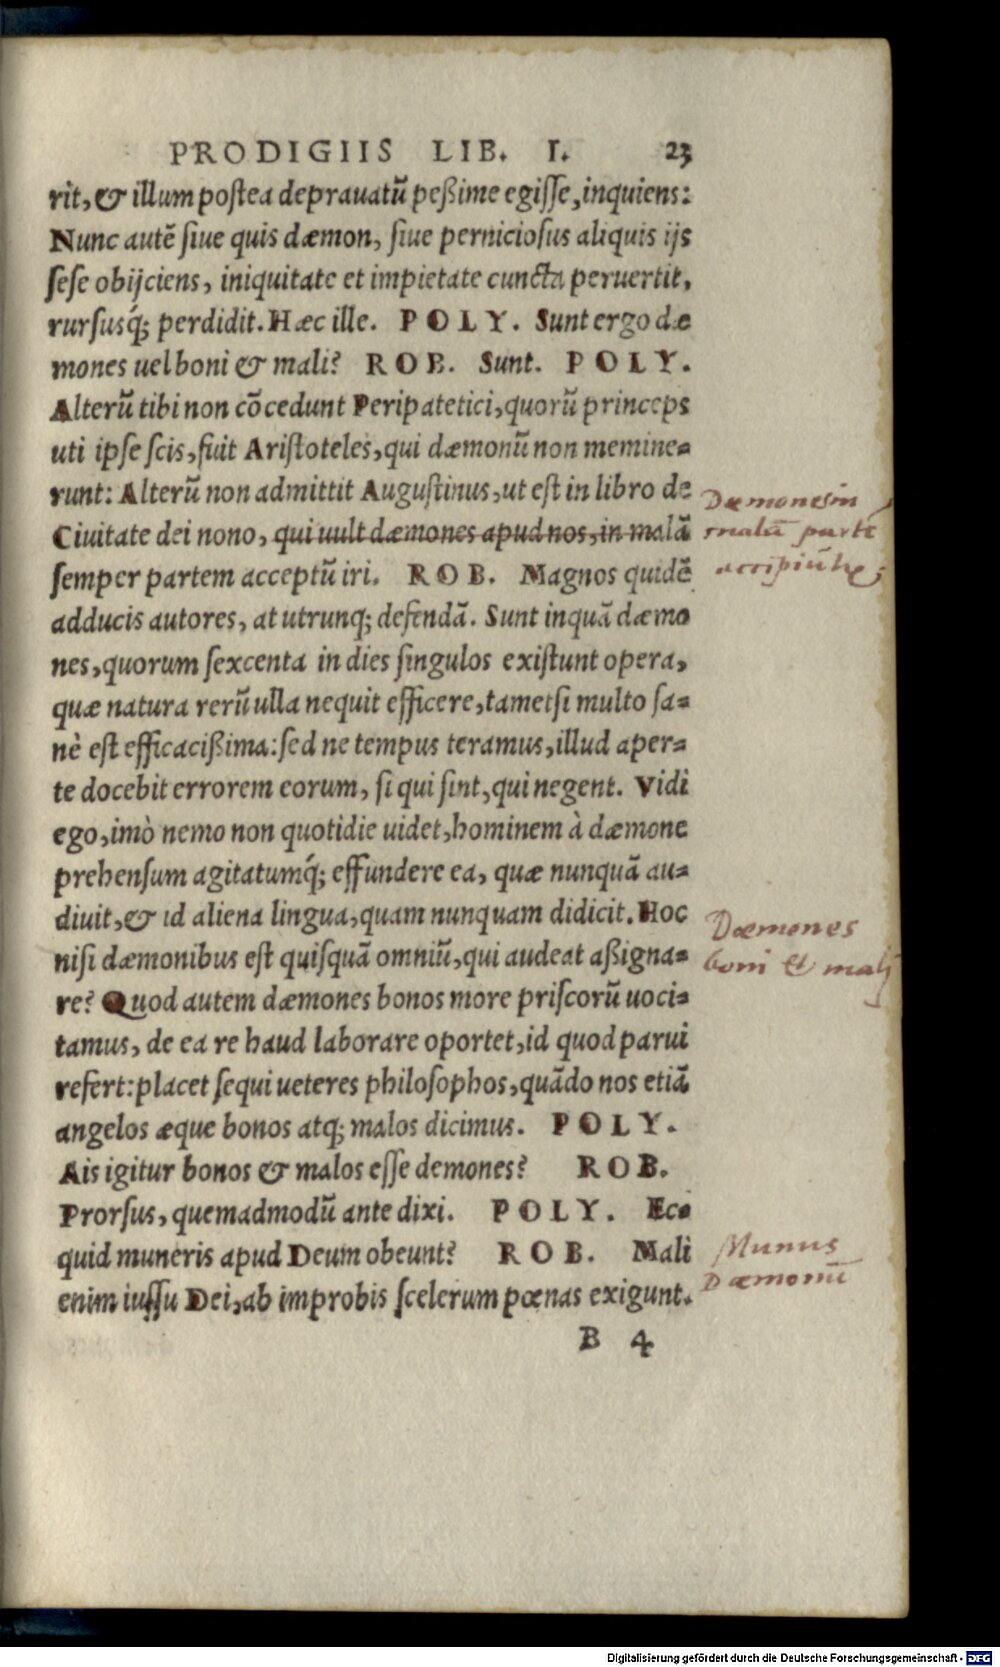 PRODIGIIS LIB. I. 23
rit, & illum postea deprauatũ peßime egisse, inquiens:
Nunc autẽ siue quis dæmon, siue perniciosus aliquis ijs
sese obijciens, iniquitate et impietate cuncta peruertit,
rursusq́; perdidit. Hæc ille. POLY. Sunt ergo dæ
mones uel boni & mali? ROB. Sunt. POLY.
Alterũ tibi non cõcedunt Peripatetici, quorũ princeps
uti ipse scis, fuit Aristoteles, qui dæmonũ non memine-
runt: Alterũ non admittit Augustinus, ut est in libro de
Ciuitate dei nono, qui uult dæmones apud nos, in malã
semper partem acceptũ iri. ROB. Magnos quidẽ
adducis autores, at utrunq; defendã. Sunt inquã dæmo
nes, quorum sexcenta in dies singulos existunt opera,
quæ natura rerũ ulla nequit efficere, tametsi multo sa-
nè est efficacißima: sed ne tempus teramus, illud aper-
te docebit errorem eorum, si qui sint, qui negent. Vidi
ego, imò nemo non quotidie uidet, hominem à dæmone
prehensum agitatumq́; effundere ea, quæ nunquã au-
diuit, & id aliena lingua, quam nunquam didicit. Hoc
nisi dæmonibus est quisquã omniũ, qui audeat aßigna-
re? Quod autem dæmones bonos more priscorũ uoci-
tamus, de ea re haud laborare oportet, id quod parui
refert: placet sequi ueteres philosophos, quãdo nos etiã
angelos æque bonos atq; malos dicimus. POLY.
Ais igitur bonos & malos esse demones? ROB.
Prorsus, quemadmodũ ante dixi. POLY. Ec-
quid muneris apud Deum obeunt? ROB. Mali
enim iussu Dei, ab improbis scelerum pœnas exigunt.
B 4
Dæmones in
malã partẽ
Dæmones
boni et malj
Munus
Dæmoniũ
Digitalisierung gefördert durch die Deutsche Forschungsgemeinschaft - DFG